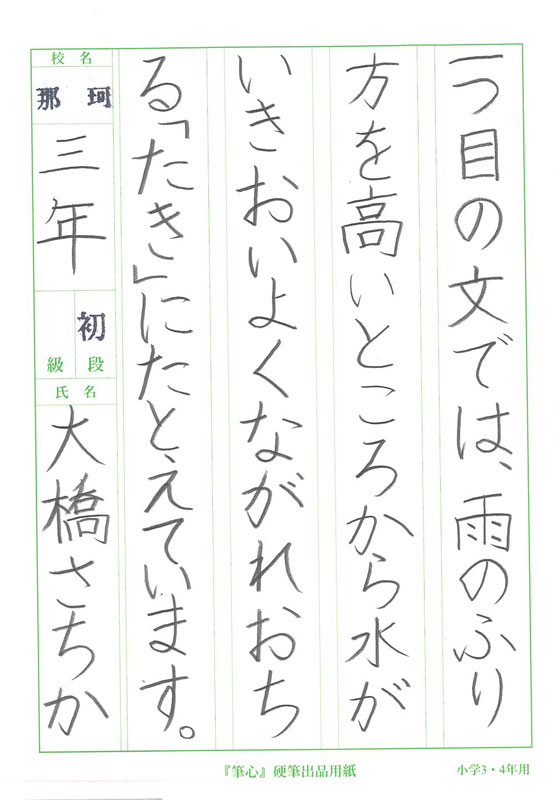 一つ目の文では、雨のふり
方を高いところから水が
いきおいよくながれおち
る「たき」にたとえています。
校名
那珂
三年
初
段
級
氏名
大橋さちか
『筆心』硬筆出品用紙
小学3・4年用